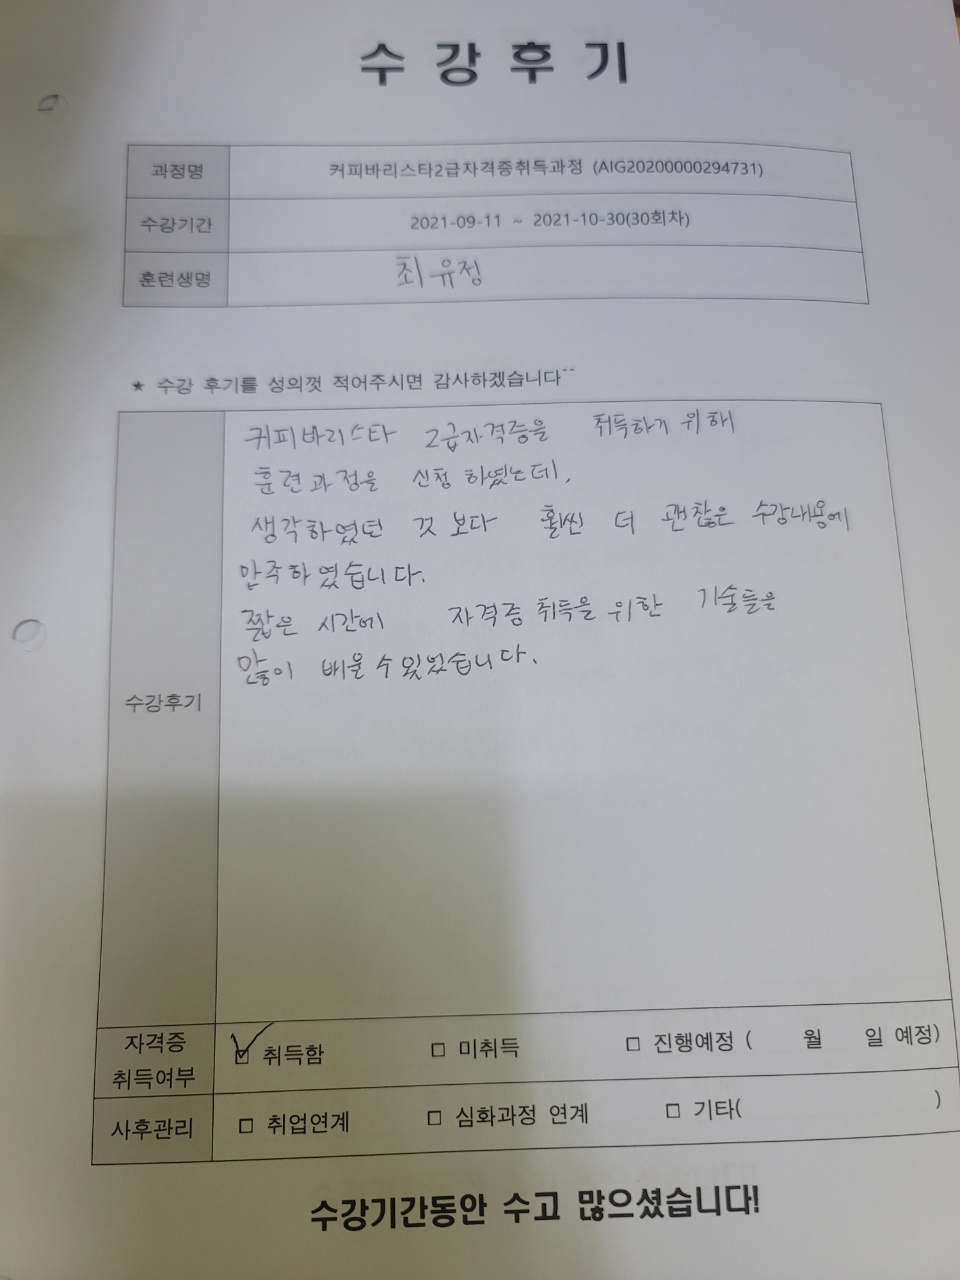 수 강 후 기
과정명 커피바리스타2급자격증취득과정 (AIG20200000294731)
수강기간 2021-09-11 ~ 2021-10-30(30회차)
훈련생명 최유정
★ 수강 후기를 성의껏 적어주시면 감사하겠습니다^^
커피바리스타 2급자격증을 취득하기 위해
훈련과정을 신청 하였는데,
생각하였던 것 보다 훨씬 더 괜찮은 수강내용에
만족하였습니다.
짧은 시간에 자격증 취득을 위한 기술들을
많이 배울 수 있었습니다.
수강후기
자격증
취득여부
☑ 취득함 □ 미취득 □ 진행예정 ( 월 일 예정)
사후관리 □ 취업연계 □ 심화과정 연계 □ 기타( )
수강기간동안 수고 많으셨습니다!